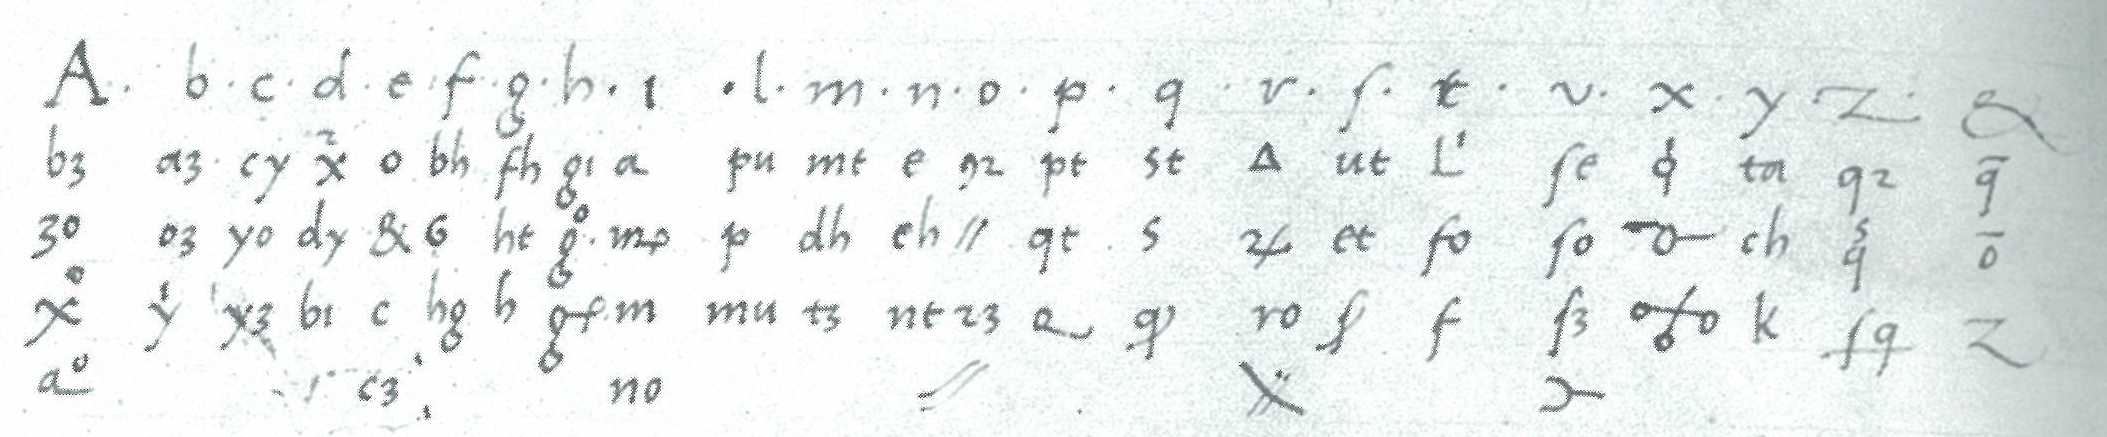 A. b. c. d. e. f. g. h. ı .l. m. n. o. p. q. r. ſ. t. v. x. y z. &
b3 a3 cy x̊ o bh fh gı a pu mt e 92 pt st Δ ut L' ſe ta q2 q̄
30 o3 yo dy & 6 ht g° mp p dh eh // qt s 4 et fo ſo ch q ō
x° ẏ y3 bı c hg h gf m mu t3 nt 23 a q ro ſ f ſ3 k ſq z
a° c3 no